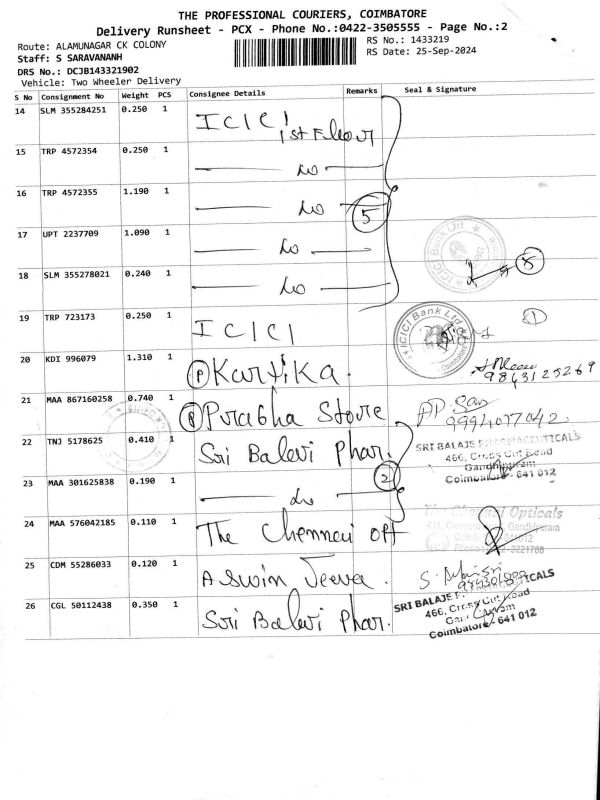 THE PROFESSIONAL COURIERS, COIMBATORE
Delivery Runsheet - PCX - Phone No.:0422-3505555 - Page No.:2
Route: ALAMUNAGAR CK COLONY
RS No.: 1433219
Staff: S SARAVANANH
RS Date: 25-Sep-2024
DRS No.: DCJB143321902
Vehicle: Two Wheeler Delivery
S No Consignment No Weight PCS Consignee Details Remarks Seal & Signature
14 SLM 355284251 0.250 1 ICICI 1st Floor
15 TRP 4572354 0.250 1 — do —
16 TRP 4572355 1.190 1 — do — 5
17 UPT 2237709 1.090 1 — do —
18 SLM 355278021 0.240 1 — do — 5
19 TRP 723173 0.250 1 ICICI ICICI Bank Ltd 1
20 KDI 996079 1.310 1 P Kartika. 9843125269
21 MAA 867160258 0.740 1 P Prabha Store 9994077042
22 TNJ 5178625 0.410 1 Sri Balaji Phar.
SRI BALAJE PHARMACEUTICALS
466, Cross Cut Road
Gandhipuram
Coimbatore - 641 012
23 MAA 301625838 0.190 1 — do — 2
24 MAA 576042185 0.110 1 The Chennai Opt
Chennai Opticals
Gandhipuram
25 CDM 55286033 0.120 1 Aswin Jeeva.
26 CGL 50112438 0.350 1 Sri Balaji Phar.
SRI BALAJE PHARMACEUTICALS
466, Cross Cut Road
Gandhipuram
Coimbatore - 641 012